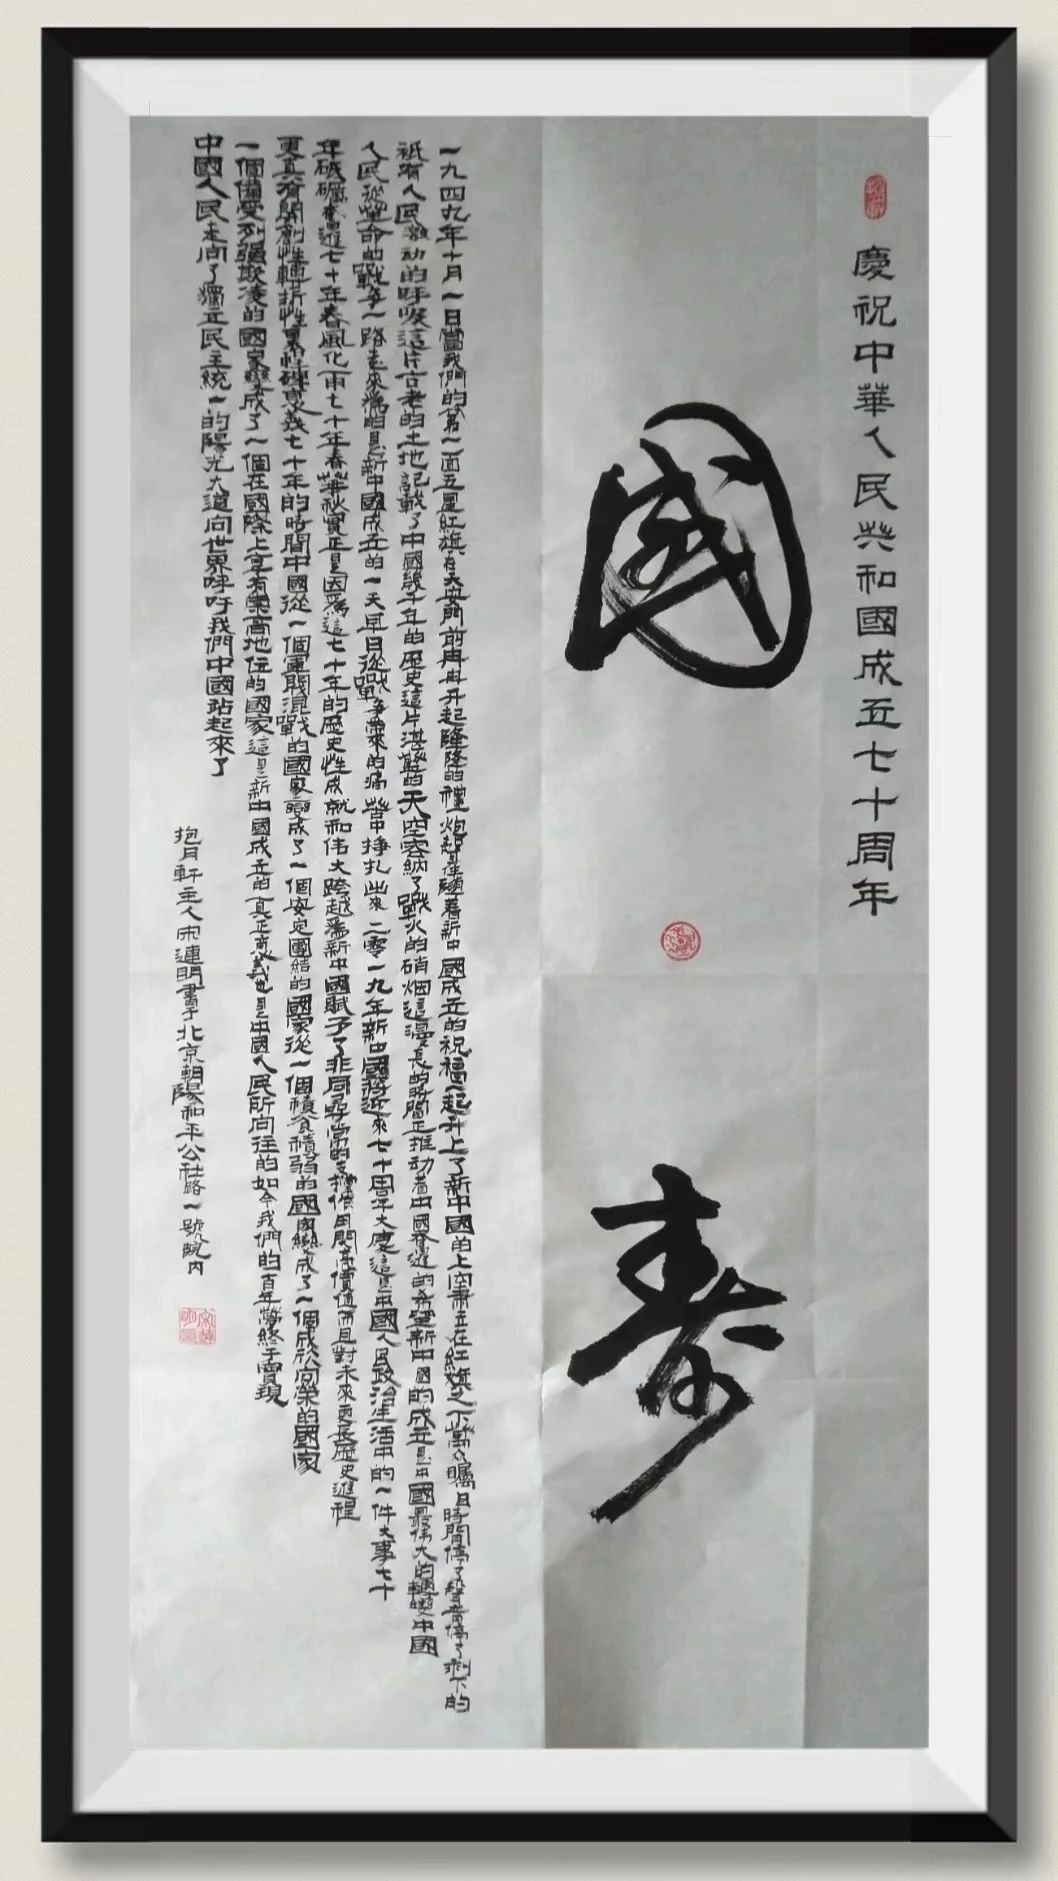 慶祝中華人民共和國成立七十周年
國
壽
一九四九年十月一日當我們的第一面五星紅旗在天安門前冉冉升起隆隆的禮炮聲伴隨着新中國成立的祝福一起升上了新中國的上空肅立在紅旗之下萬人矚目時間停了聲音停了剩下的
祇有人民激动的呼喚這片古老的土地記載了中國幾千年的歷史這片湛藍的天空容納了戰火的硝烟這漫長的時間正推动着中國奋進的希望新中國的成立是中國最偉大的轉變中國
人民從革命的戰爭一路走來為的是新中國成立的一天早日從戰爭帶來的痛苦中掙扎出來二零一九年新中國將迎來七十周年大慶這是中國人民政治生活中的一件大事七十
年砥礪奋進七十年春風化雨七十年春華秋實正是因為這七十年的歷史性成就和伟大跨越為新中國賦予了非同尋常的支撐作用開高價值而且對未來更長歷史進程
更具有開創性轉折性里程碑意義七十年的時間中國從一個軍閥混戰的國家變成了一個安定團結的國家從一個積貧積弱的國家變成了一個欣欣向榮的國家
一個備受列強欺凌的國家變成了一個在國際上享有崇高地位的國家這是新中國成立的真正意義也是中國人民所向往的如今我們的百年夢終于實現
中國人民走向了獨立民主統一的陽光大道向世界呼吁我們中國站起來了
抱月軒主人宋連明書于北京朝陽和平公社路一號院内